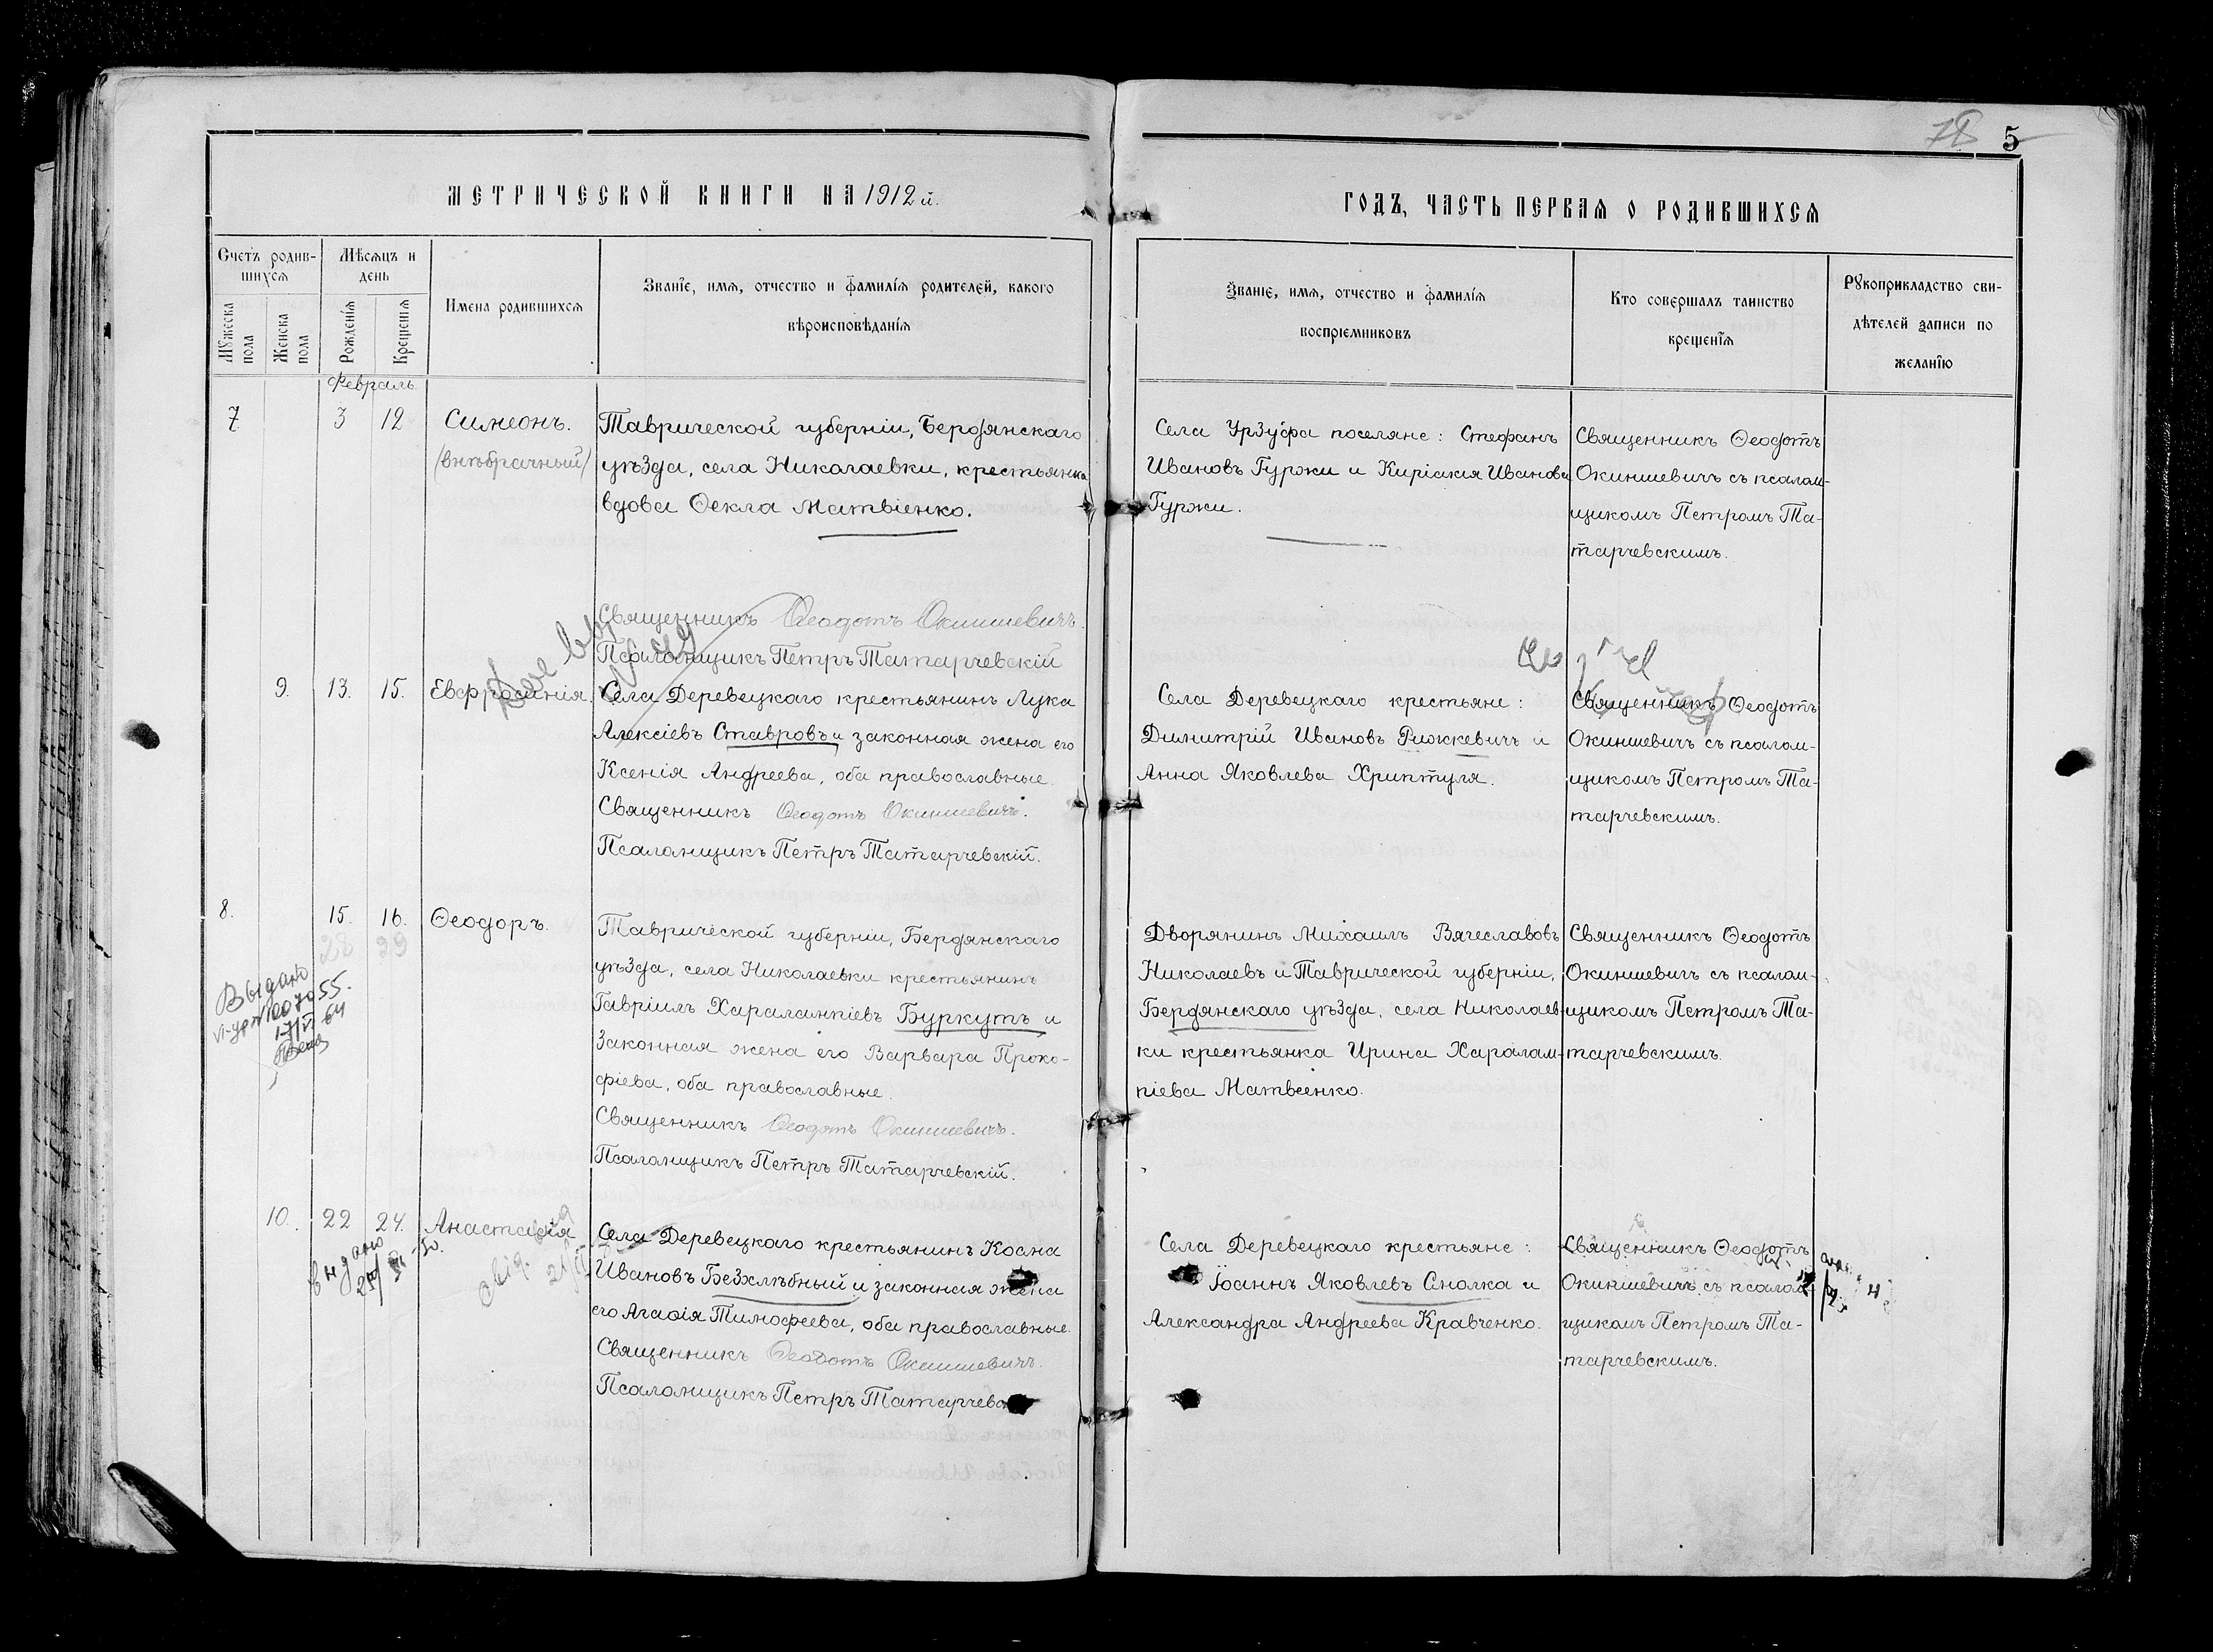 5
МЕТРИЧЕСКОЙ КНИГИ НА 1912 й.
ГОДЪ, ЧАСТЬ ПЕРВАЯ О РОДИВШИХСЯ
Счетъ родив-
шихся
Мѣсяцъ и
день
Мужеска
пола
Женска
пола
Рожденія
Крещенія
Имена родившихся
Званіе, имя, отчество и фамилія родителей, какого
вѣроисповѣданія
Званіе, имя, отчество и фамилія
воспріемниковъ
Кто совершалъ таинство
крещенія
Рукоприкладство сви-
дѣтелей записи по
желанію
Февраль.
7. 3 12 Симеонъ.
(внѣбрачный)
Таврической губерніи, Бердянскаго
уѣзда, села Николаевки, крестьянка
вдова Ѳекла Матвіенко.
Священникъ Ѳеодотъ Окиншевичъ.
Псаломщикъ Петръ Татарчевскій
Села Урзуфа поселяне: Стефанъ
Ивановъ Гуржи и Киріакія Иванова
Гуржи.
Священникъ Ѳеодотъ
Окиншевичъ съ псалом-
щикомъ Петромъ Та-
тарчевскимъ.
9. 13. 15. Евфросинія.
Села Деревецкаго крестьянинъ Лука
Алексіевъ Ставровъ и законная жена его
Ксенія Андреева, оба православные.
Священникъ Ѳеодотъ Окиншевичъ.
Псаломщикъ Петръ Татарчевскій.
Села Деревецкаго крестьяне:
Димитрій Ивановъ Рижкевичъ и
Анна Яковлева Хриптуля.
Священникъ Ѳеодотъ
Окиншевичъ съ псалом-
щикомъ Петромъ Та-
тарчевскимъ.
8. 15. 16. Ѳеодоръ.
28 29
Выдано
55.
64
Таврической губерніи, Бердянскаго
уѣзда, села Николаевки крестьянинъ
Гавріилъ Харалампіевъ Буркутъ и
законная жена его Варвара Проко-
фіева, оба православные.
Священникъ Ѳеодотъ Окиншевичъ.
Псаломщикъ Петръ Татарчевскій.
Дворянинъ Михаилъ Вячеславовъ
Николаевъ и Таврической губерніи,
Бердянскаго уѣзда, села Николаев-
ки крестьянка Ирина Харалам-
піева Матвеенко.
Священникъ Ѳеодотъ
Окиншевичъ съ псалом-
щикомъ Петромъ Та-
тарчевскимъ.
10. 22 24. Анастасія
Выдано
Села Деревецкаго крестьянинъ Косма
Ивановъ Безхлѣбный и законная жена
его Агаѳія Тимофеева, оба православные.
Священникъ Ѳеодотъ Окиншевичъ.
Псаломщикъ Петръ Татарчевс
Села Деревецкаго крестьяне:
Іоаннъ Яковлевъ Смолка и
Александра Андреева Кравченко.
Священникъ Ѳеодотъ
Окиншевичъ съ псалом-
щикомъ Петромъ Та-
тарчевскимъ.